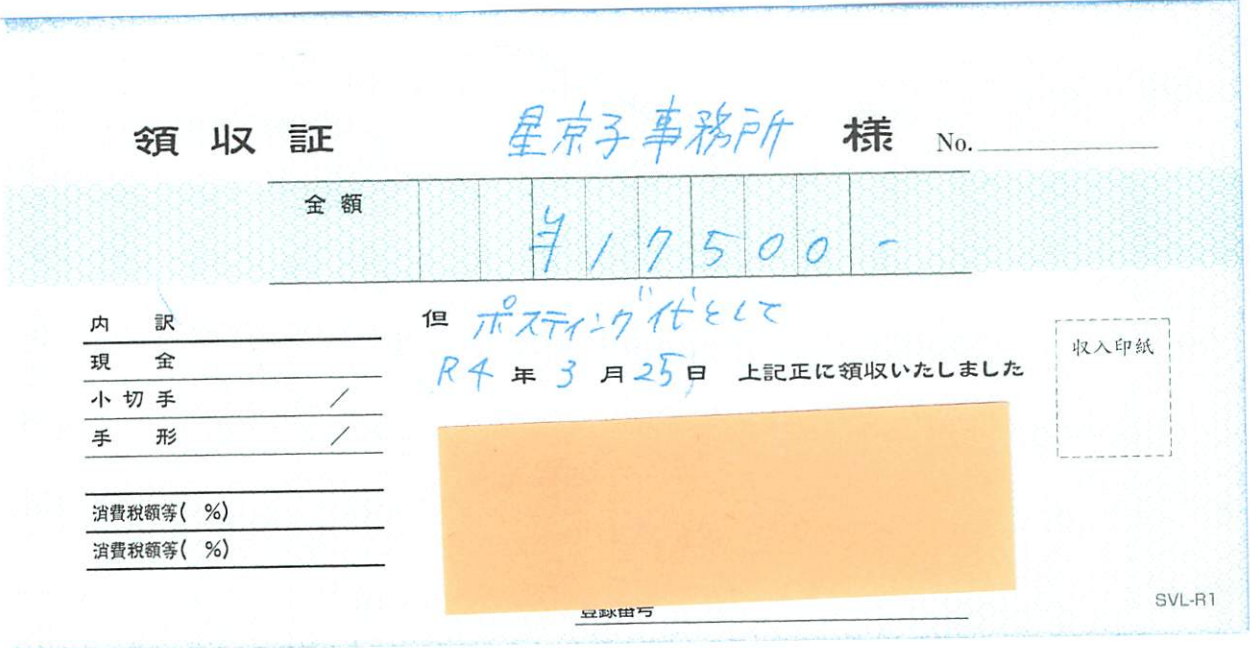 領収証 星京子事務所 様 No.
金額 ¥17500-
但 ポスティング代として
R4年3月25日 上記正に領収いたしました
内訳
現金
小切手 /
手形 /
消費税額等( %)
消費税額等( %)
収入印紙
登録番号
SVL-R1